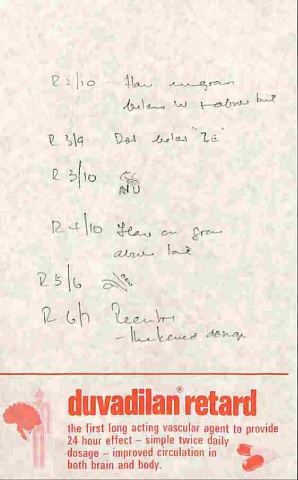 R 2/10 Flaw in grain
below W + above but
R 3/9 Dot below "ZE"
R 3/10
R 4/10 Flaw on grain
above but
R 5/6
R 6/7 Re-entry
- thickened design
duvadilan® retard
the first long acting vascular agent to provide
24 hour effect – simple twice daily
dosage – improved circulation in
both brain and body.